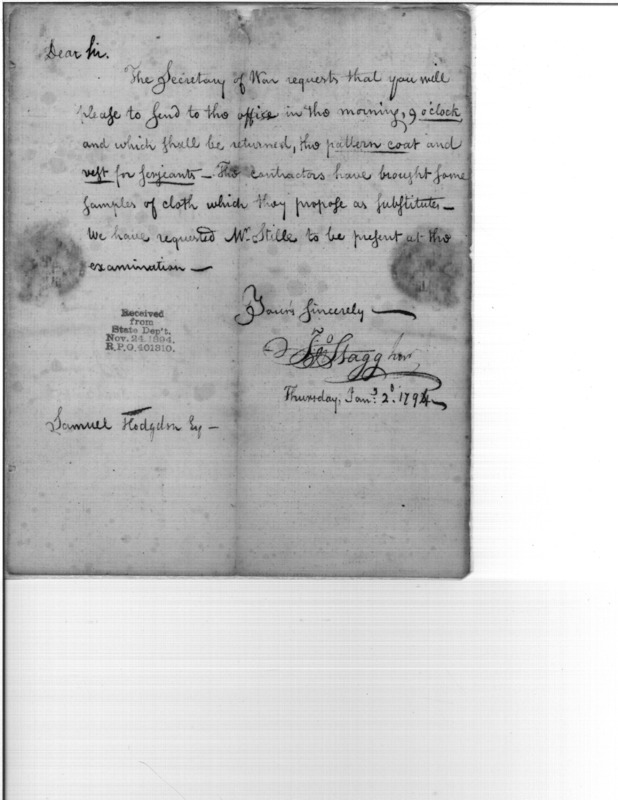 Dear Sir.
The Secretary of War requests that you will
please to send to the office in the morning, 9 o'clock
and which shall be returned, the pattern coat and
vest for serjeants — The contractors have brought some
samples of cloth which they propose as substitutes —
We have requested Mr. Stille to be present at the
examination —
Received
from
State Dep't.
Nov. 24. 1894.
R.P.O. 401810.
Yours Sincerely —
Jo Stagg Junr
Thursday, Jany. 2d. 1794 —
Samuel Hodgdon Esq —